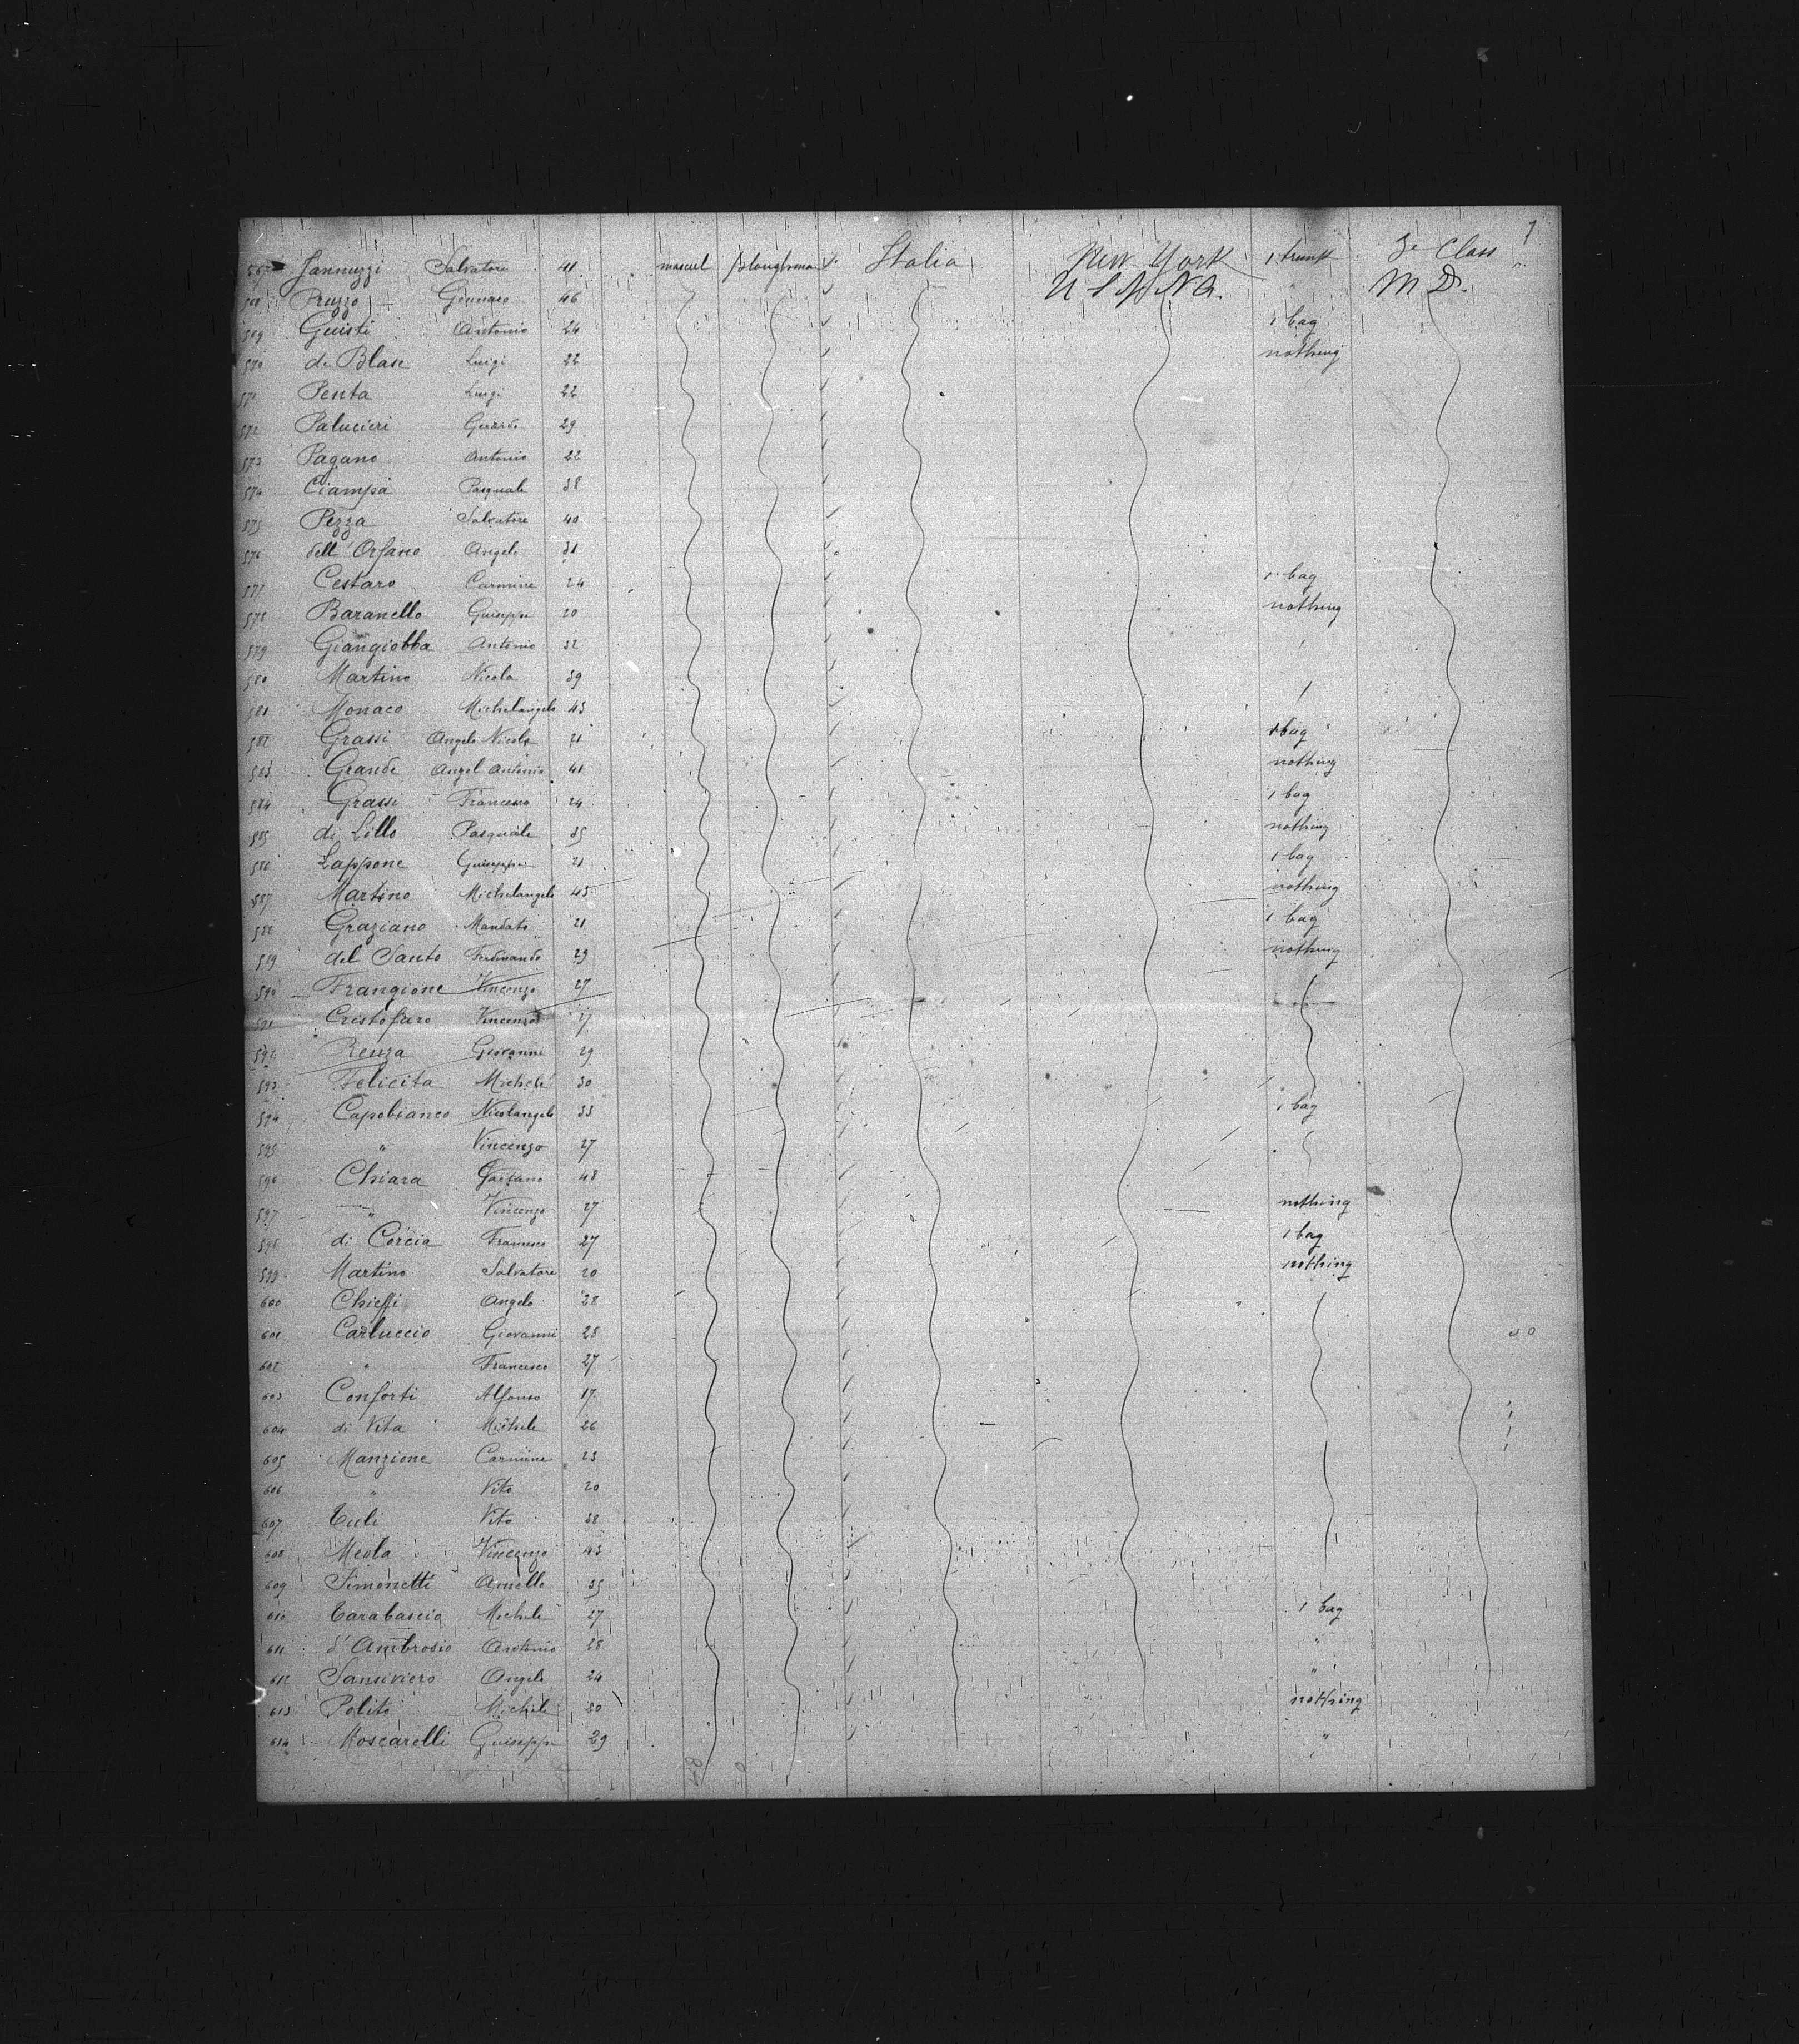 567 Jannuzzi Salvatore 41 mascul ploughman Italia New York 1 trunk 3e Class
568 Pruzzo Gennaro 46 " M D.
569 Guisti Antonio 24 1 bag
570 de Blase Luigi 22 nothing
571 Penta Luigi 22
572 Palucieri Gerardo 29
573 Pagano Antonio 22
574 Ciampa Pasquale 38
575 Pezza Salvatore 40
576 dell' Orfano Angelo 31
577 Cestaro Carmine 24 1 bag
578 Baranello Guiseppe 20 nothing
579 Giangiobba Antonio 32
580 Martino Nicola 39
581 Monaco Michelangelo 43
582 Grassi Angelo Nicola 21 1 bag
583 Grande Angel Antonio 41 nothing
584 Grassi Francesco 24 1 bag
585 di Lillo Pasquale 35 nothing
586 Lappone Guiseppe 21 1 bag
587 Martino Michelangelo 43 nothing
588 Graziano Mandato 21 1 bag
589 del Santo Ferdinando 29 nothing
590 Frangione Vincenzo 27
591 Cristofaro Vincenzo 27
592 Renza Giovanni 29
593 Felicita Michele 30
594 Capobianco Nicolangelo 33 1 bag
595 " Vincenzo 27
596 Chiara Gaetano 48
597 " Vincenzo 27 nothing
598 di Corcia Francesco 27 1 bag
599 Martino Salvatore 20 nothing
600 Chieffi Angelo 28
601 Carluccio Giovanni 28
602 " Francesco 27
603 Conforti Alfonso 17
604 di Vita Michele 26
605 Manzione Carmine 23
606 " Vito 20
607 Tuli Vito 38
608 Meola Vincenzo 43
609 Simonetti Aniello 35
610 Tarabascio Michele 27 1 bag
611 d'Ambrosio Antonio 28 "
612 Sansiviero Angelo 24 "
613 Polito Michele 30 nothing
614 Moscarelli Guiseppe 29 "